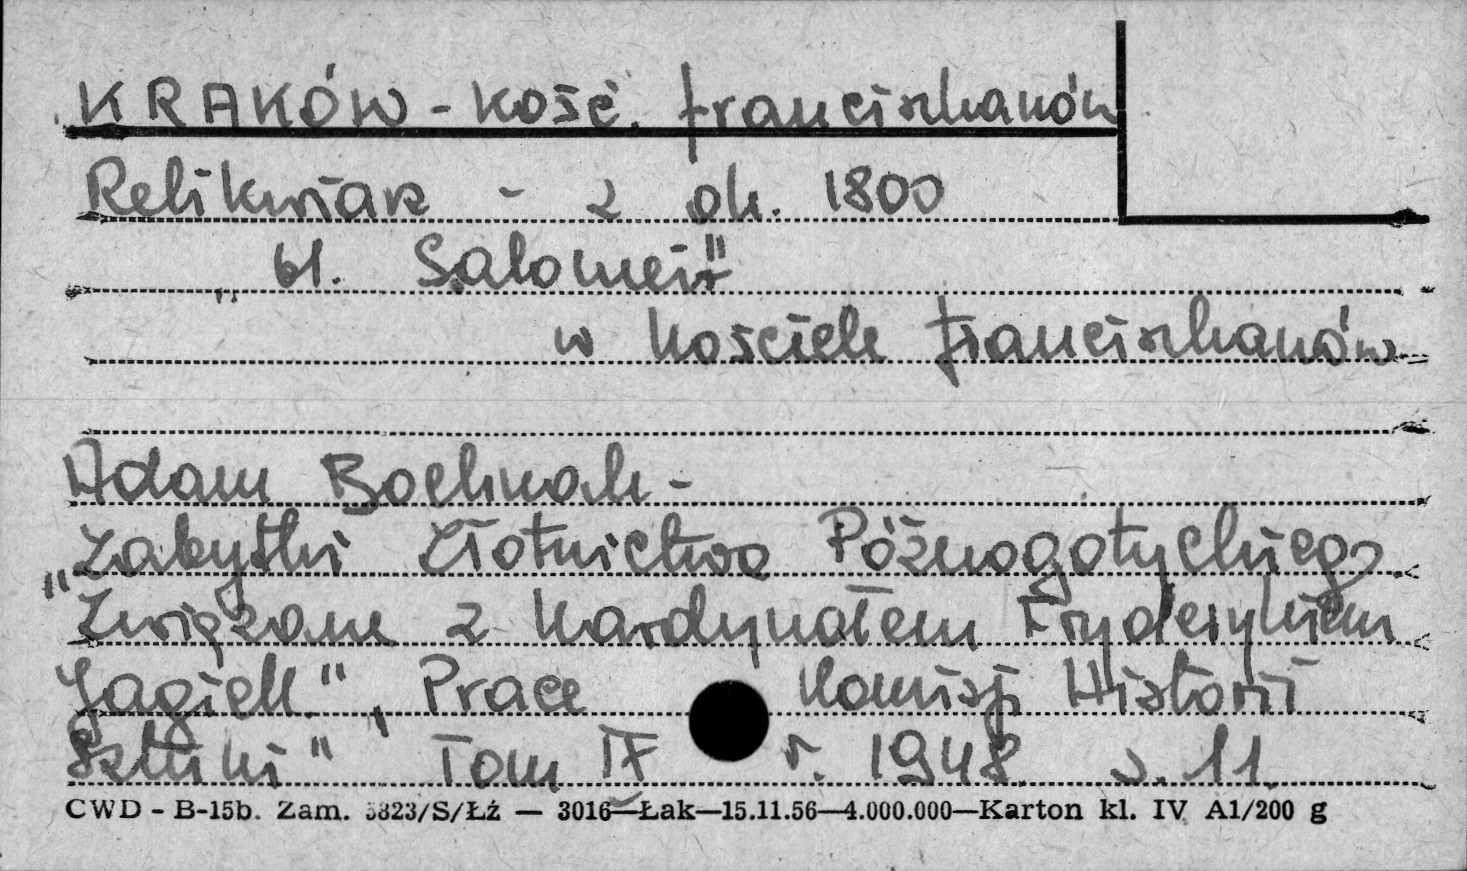 KRAKÓW - kość. franciszkanów
Relikwiarz - z ok. 1800
"bł. Salomei"
w kościele franciszkanów
Adam Bochnak -
"Zabytki Złotnictwa Późnogotyckiego
Związane z Kardynałem Fryderykiem
Jagiell.", Prace Komisji Historii
Sztuki" Tom IX r. 1948 s. 11
CWD - B-15b. Zam. 5823/S/Łź — 3016—Łak—15.11.56—4.000.000—Karton kl. IV A1/200 g